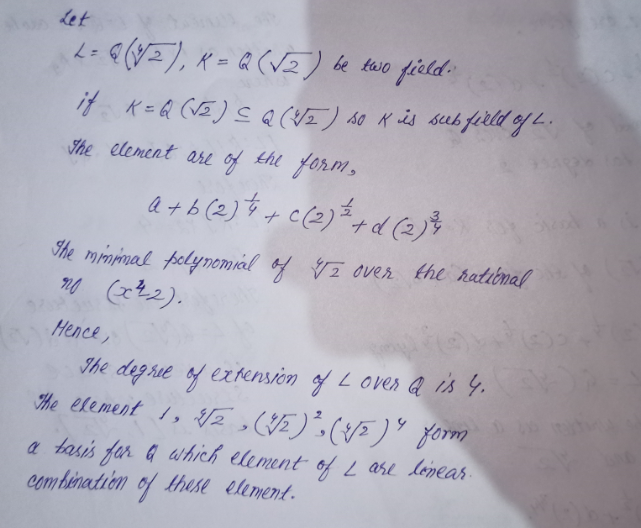 Let
L = Q(∜2), K = Q(√2) be two field.
if K = Q(√2) ⊆ Q(∜2) so K is subfield of L.
The element are of the form,
a + b(2)^{1/4} + c(2)^{1/2} + d(2)^{3/4}
The minimal polynomial of ∜2 over the rational
no (x^4-2).
Hence,
The degree of extension of L over Q is 4.
The element 1, ∜2, (∜2)^2, (∜2)^4 form
a basis for Q which element of L are linear
combination of these element.